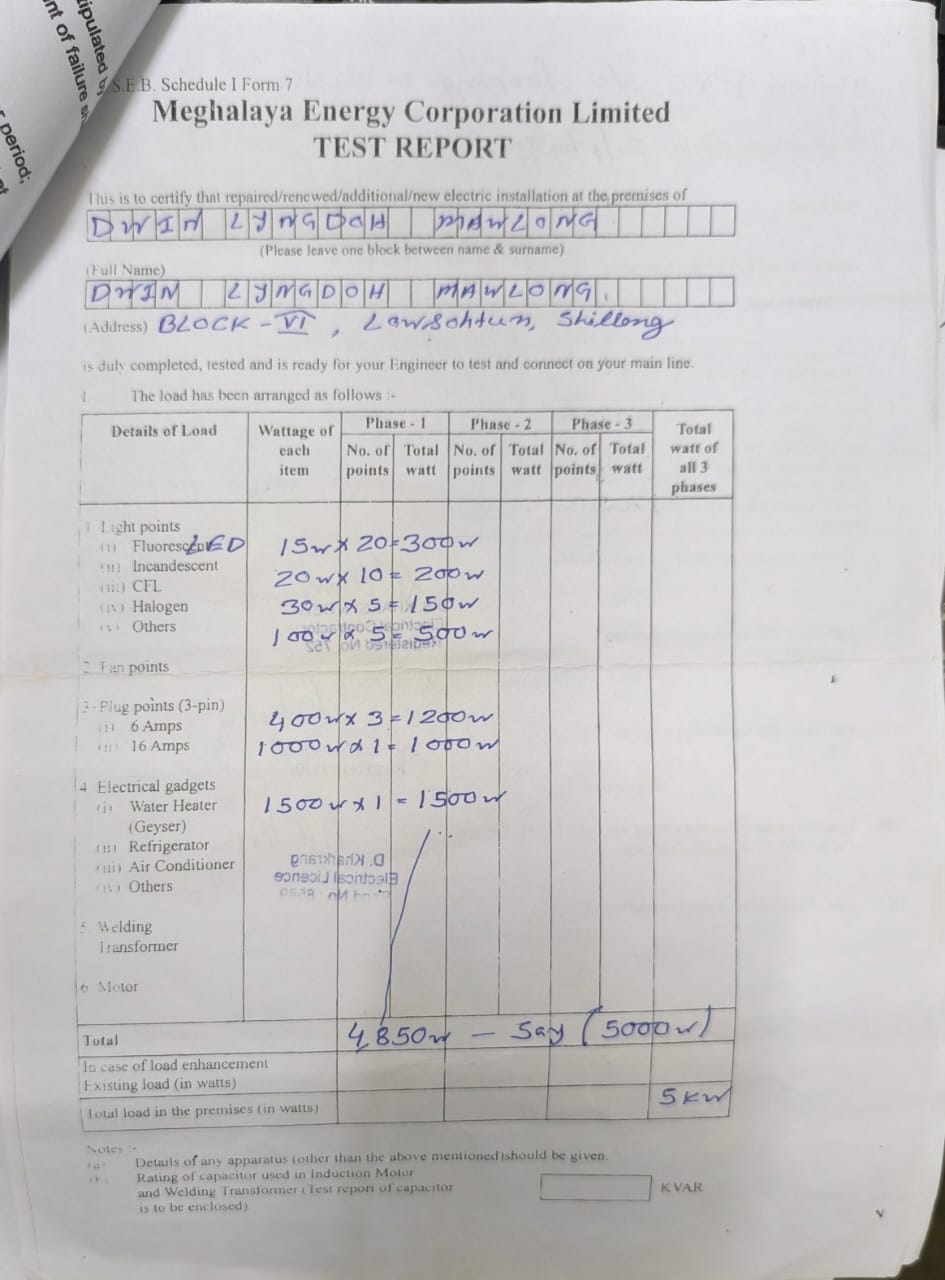 ipulated b
nt of failure
r period;
S.E.B. Schedule I Form 7
Meghalaya Energy Corporation Limited
TEST REPORT
This is to certify that repaired/renewed/additional/new electric installation at the premises of
DWIN LYNGDOH MAWLONG
(Please leave one block between name & surname)
(Full Name)
DWIN LYNGDOH MAWLONG.
(Address) BLOCK - VI, Lawsohtun, Shillong
is duly completed, tested and is ready for your Engineer to test and connect on your main line.
1. The load has been arranged as follows :-
Details of Load Wattage of each item Phase - 1 Phase - 2 Phase - 3 Total watt of all 3 phases
No. of points Total watt No. of points Total watt No. of points Total watt
1 Light points
(i) Fluorescent LED 15w x 20 = 300w
(ii) Incandescent 20w x 10 = 200w
(iii) CFL
(iv) Halogen 30w x 5 = 150w
(v) Others 100w x 5 = 500w
Electrical Contractor
Registered No 752
2 Fan points
3. Plug points (3-pin)
(i) 6 Amps 400w x 3 = 1200w
(ii) 16 Amps 1000w x 1 = 1000w
4 Electrical gadgets
(i) Water Heater 1500w x 1 = 1500w
(Geyser)
(ii) Refrigerator
(iii) Air Conditioner D. Kharkrang
(iv) Others Electrical Licence
5 Welding
Transformer
6 Motor
Total 4,850w - Say (5000w)
In case of load enhancement
Existing load (in watts)
Total load in the premises (in watts) 5 KW
Notes :-
(a) Details of any apparatus (other than the above mentioned)should be given.
(b) Rating of capacitor used in Induction Motor
and Welding Transformer (Test report of capacitor KVAR
is to be enclosed)